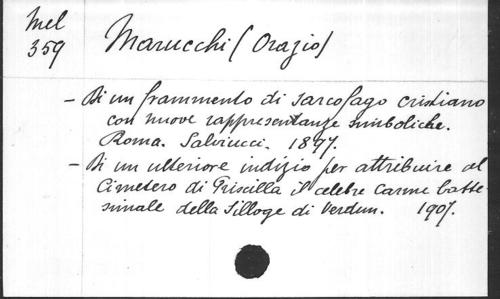 Mel
359
Marucchi (Orazio)
- Di un frammento di sarcofago cristiano
con nuove rappresentanze simboliche.
Roma. Salviucci. 1897.
- Di un ulteriore indizio per attribuire al
Cimetero di Priscilla il celebre carme batte-
simale della Silloge di Verdun. 1907.